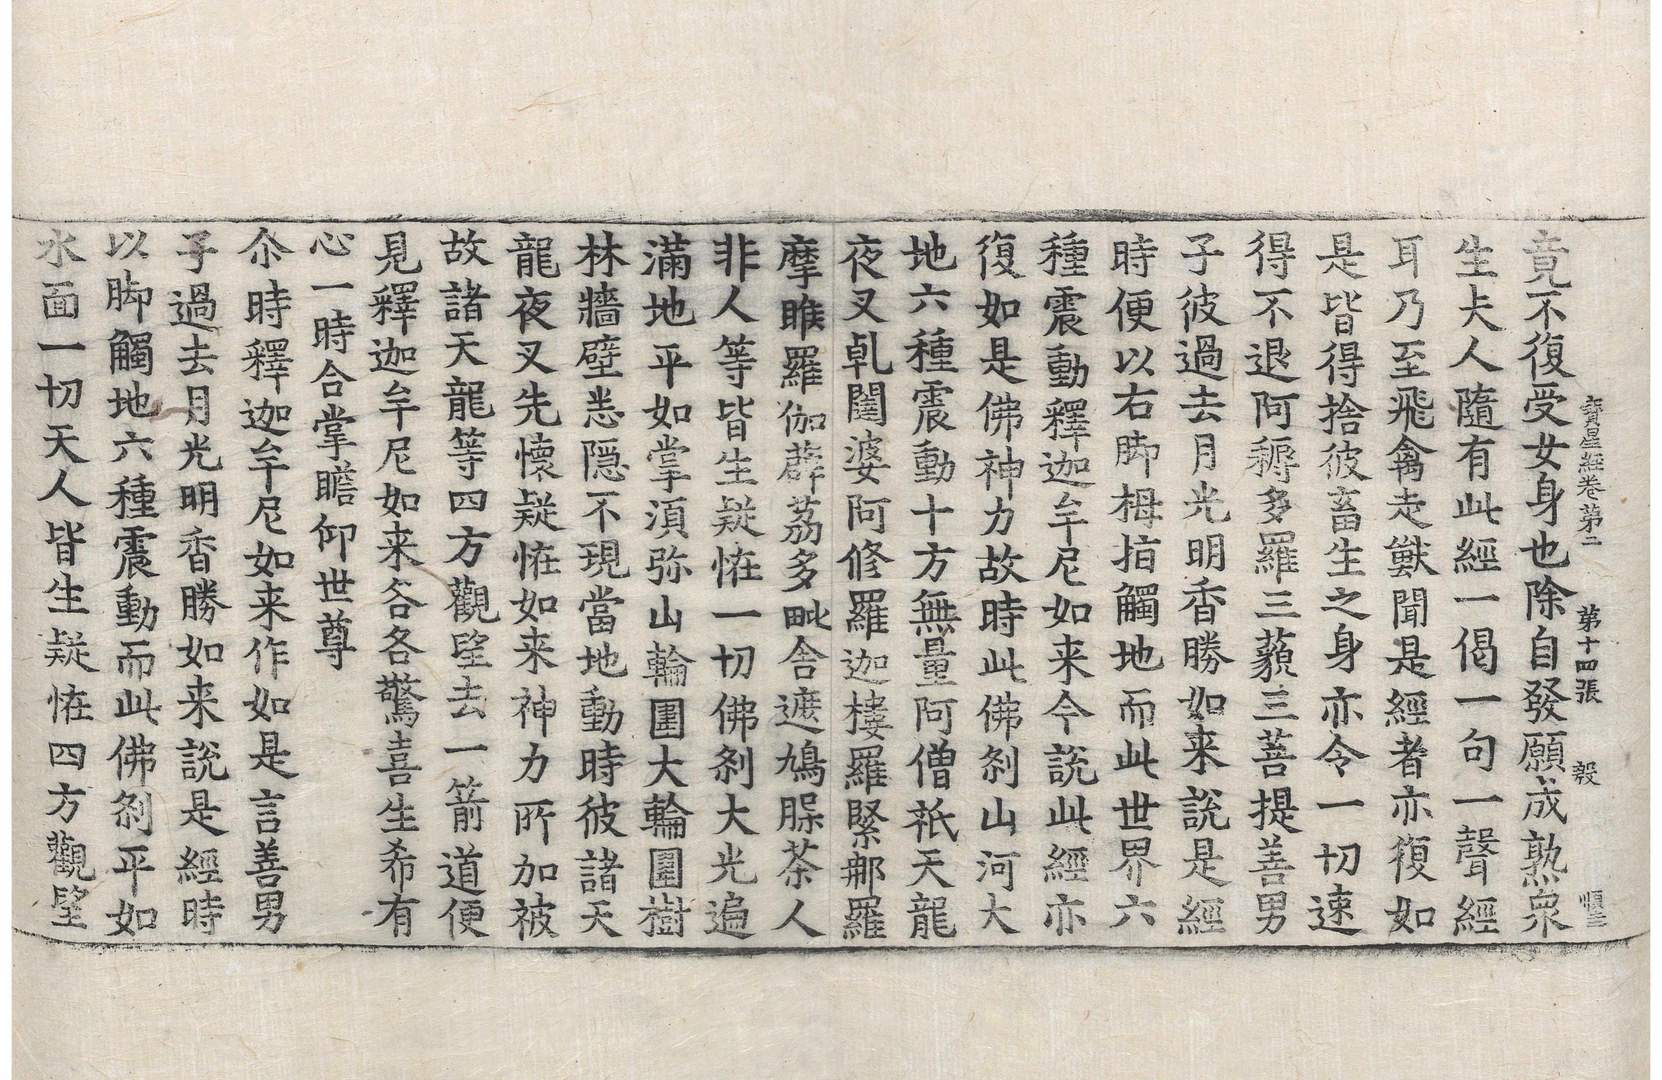 寶星經卷第二 第十四張 毅
竟不復受女身也除自發願成熟衆
生夫人隨有此經一偈一句一聲經
耳乃至飛禽走獸聞是經者亦復如
是皆得捨彼畜生之身亦令一切速
得不退阿耨多羅三藐三菩提善男
子彼過去月光明香勝如来說是經
時便以右脚拇指觸地而此世界六
種震動釋迦牟尼如来今說此經亦
復如是佛神力故時此佛刹山河大
地六種震動十方無量阿僧祇天龍
夜叉乹闥婆阿修羅迦樓羅緊那羅
摩睺羅伽薜荔多毗舍遮鳩腺茶人
非人等皆生疑恠一切佛刹大光遍
滿地平如掌湏弥山輪圍大輪圍樹
林牆壁悉隠不現當地動時彼諸天
龍夜叉先懷疑恠如来神力所加被
故諸天龍等四方觀望去一箭道便
見釋迦牟尼如来各各驚喜生希有
心一時合掌瞻仰世尊
尒時釋迦牟尼如来作如是言善男
子過去月光明香勝如来說是經時
以脚觸地六種震動而此佛刹平如
水面一切天人皆生疑恠四方觀望